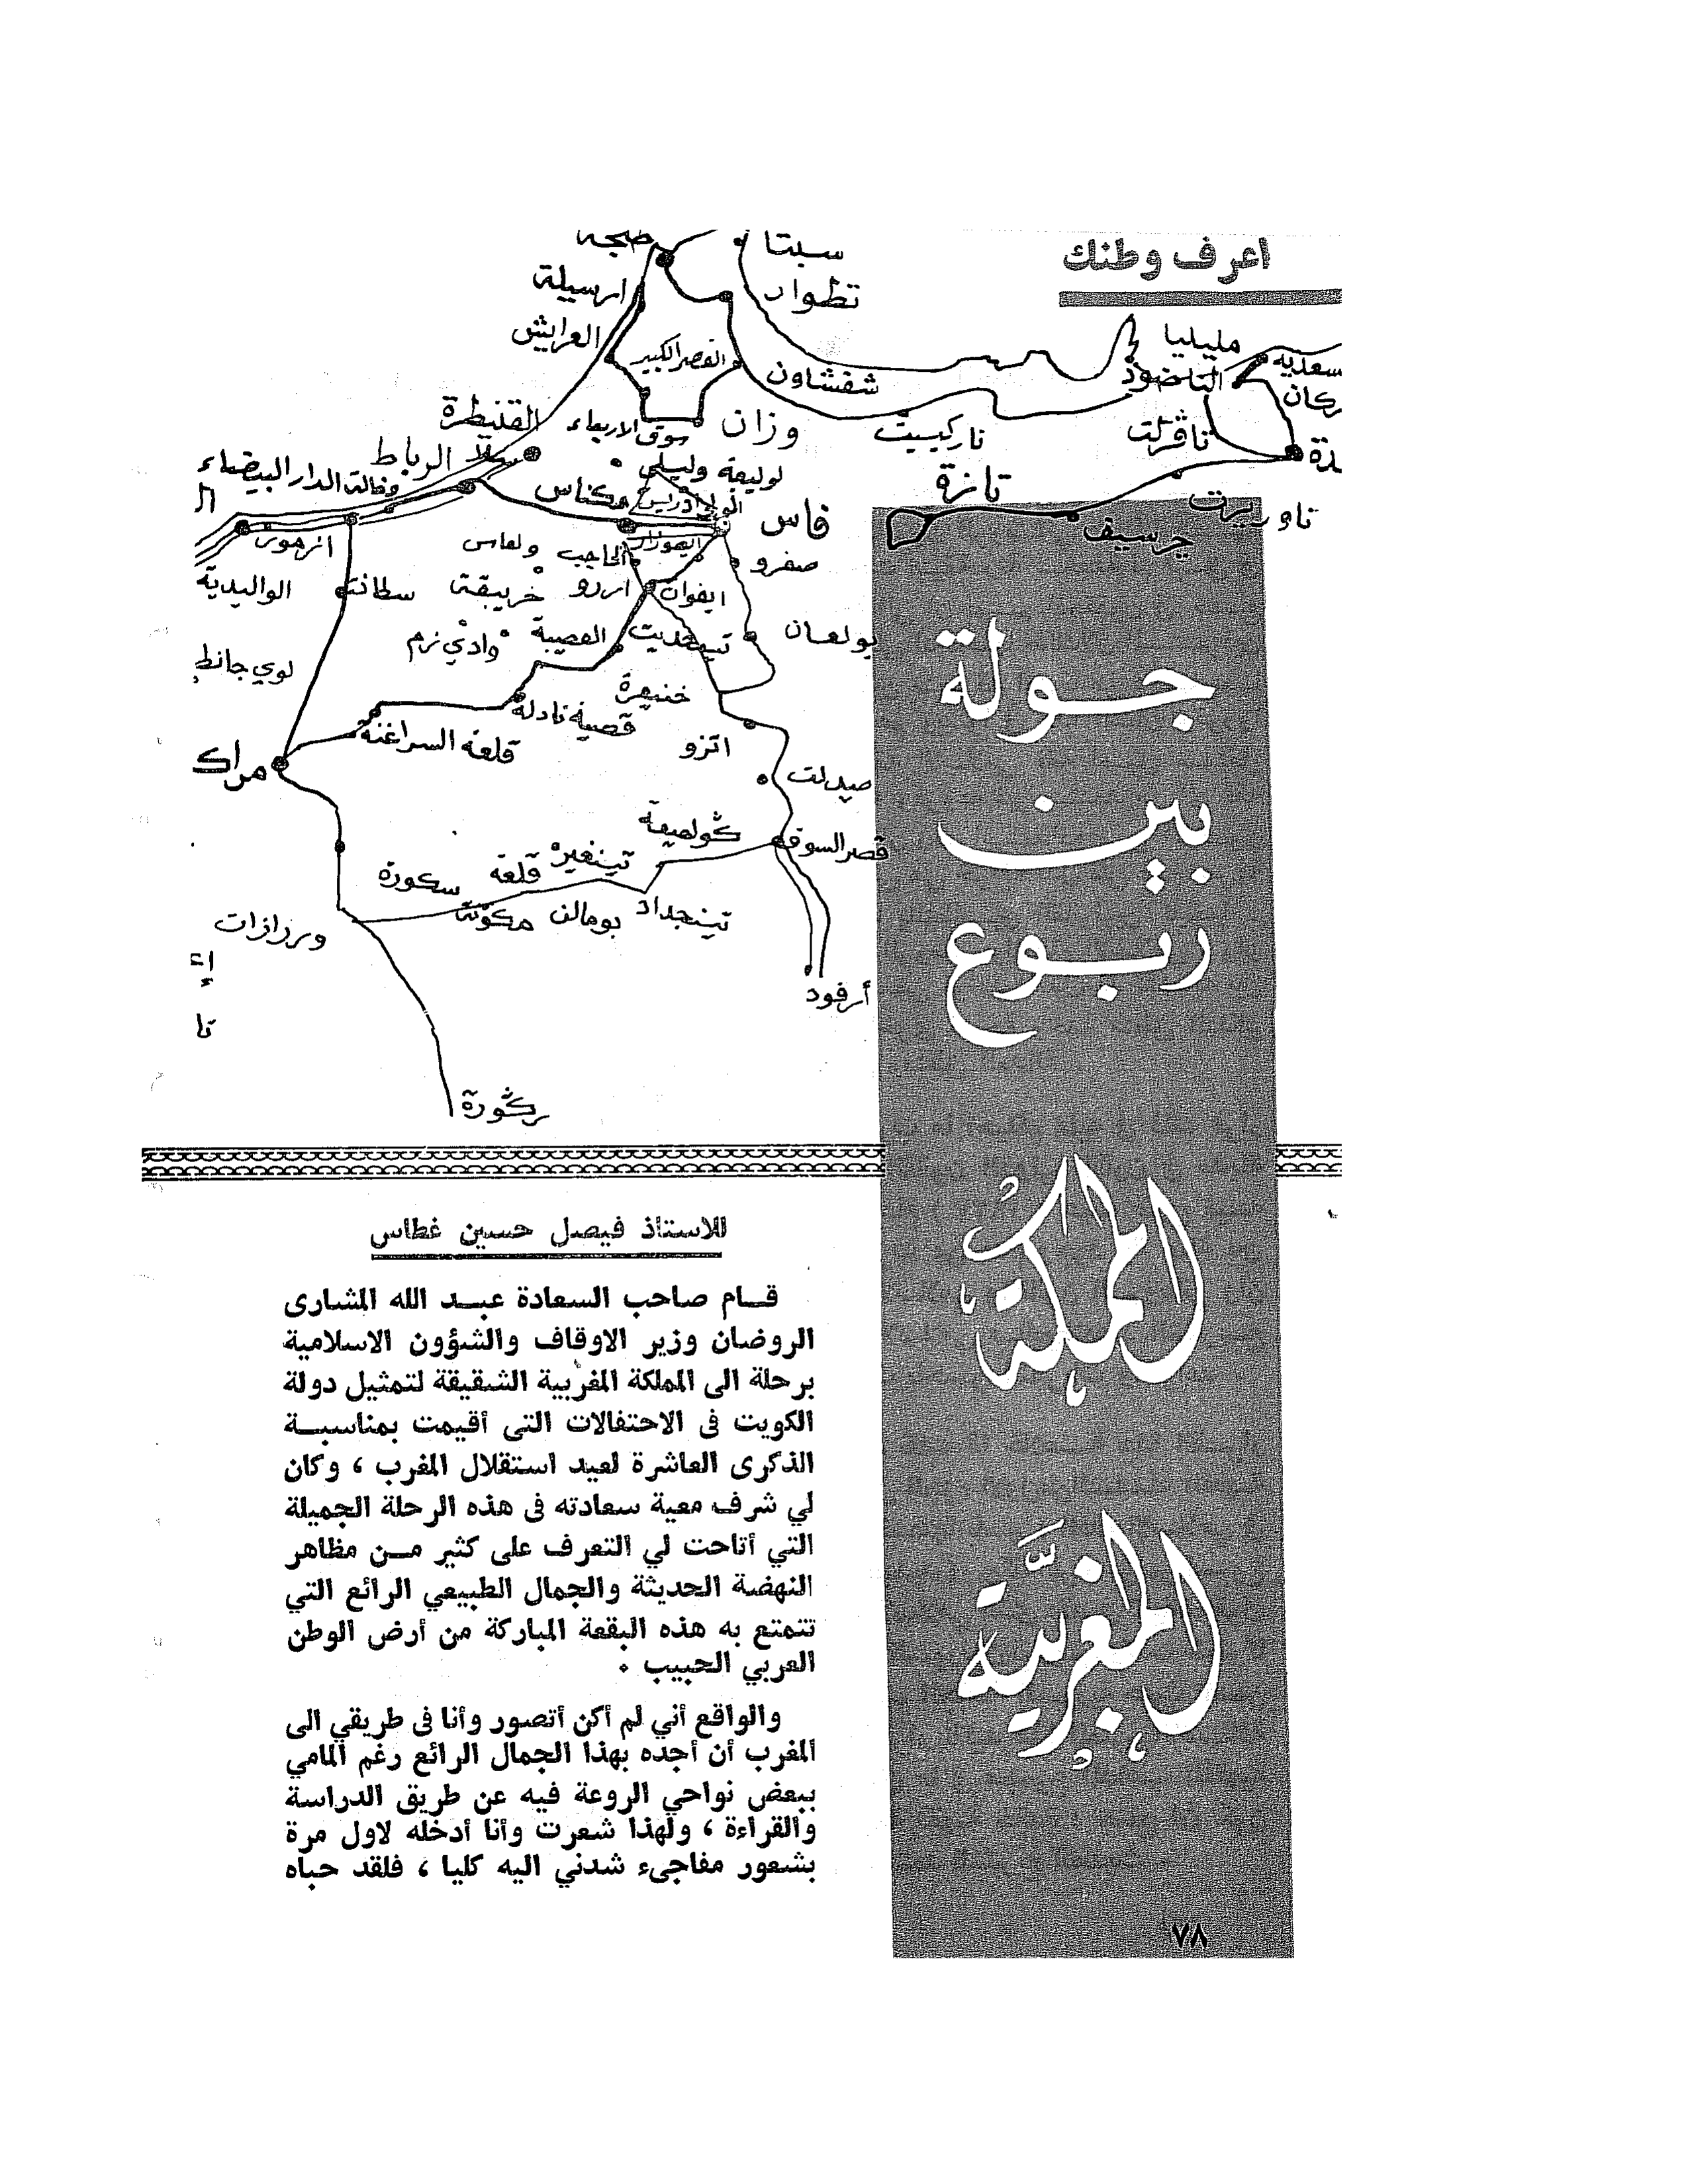 اعرف وطنك
سبتا
تطوان
ارسيلة
العرايش
القصر الكبير
شفشاون
مليليا
سعديه
الناضور
ركان
القنيطرة
سوق الاربعاء
وزان
تاركيست
تازة
سلا
الرباط
الدار البيضاء
وليلي
مكناس
فاس
جرسيف
الحاجب
صفرو
الواليدية
سطات
خريبقة
ايفران
وادي زم
القصيبة
خنيفرة
قلعة السراغنة
قصر السوق
سكورة
قلعة
تينغير
بومالن
تينجداد
ورزازات
أرفود
جولة
بين
ربوع
المملكة
المغربية
للاستاذ فيصل حسين غطاس
قــام صاحب السعادة عبــد الله المشارى
الروضان وزير الاوقاف والشؤون الاسلامية
برحلة الى المملكة المغربية الشقيقة لتمثيل دولة
الكويت فى الاحتفالات التى أقيمت بمناسبــة
الذكرى العاشرة لعيد استقلال المغرب ، وكان
لي شرف معية سعادته فى هذه الرحلة الجميلة
التي أتاحت لي التعرف على كثير مــن مظاهر
النهضة الحديثة والجمال الطبيعي الرائع التي
تتمتع به هذه البقعة المباركة من أرض الوطن
العربي الحبيب .
والواقع أني لم أكن أتصور وأنا فى طريقي الى
المغرب أن أجده بهذا الجمال الرائع رغم المامي
ببعض نواحي الروعة فيه عن طريق الدراسة
والقراءة ، ولهذا شعرت وأنا أدخله لاول مرة
بشعور مفاجىء شدني اليه كليا ، فلقد حباه
٧٨